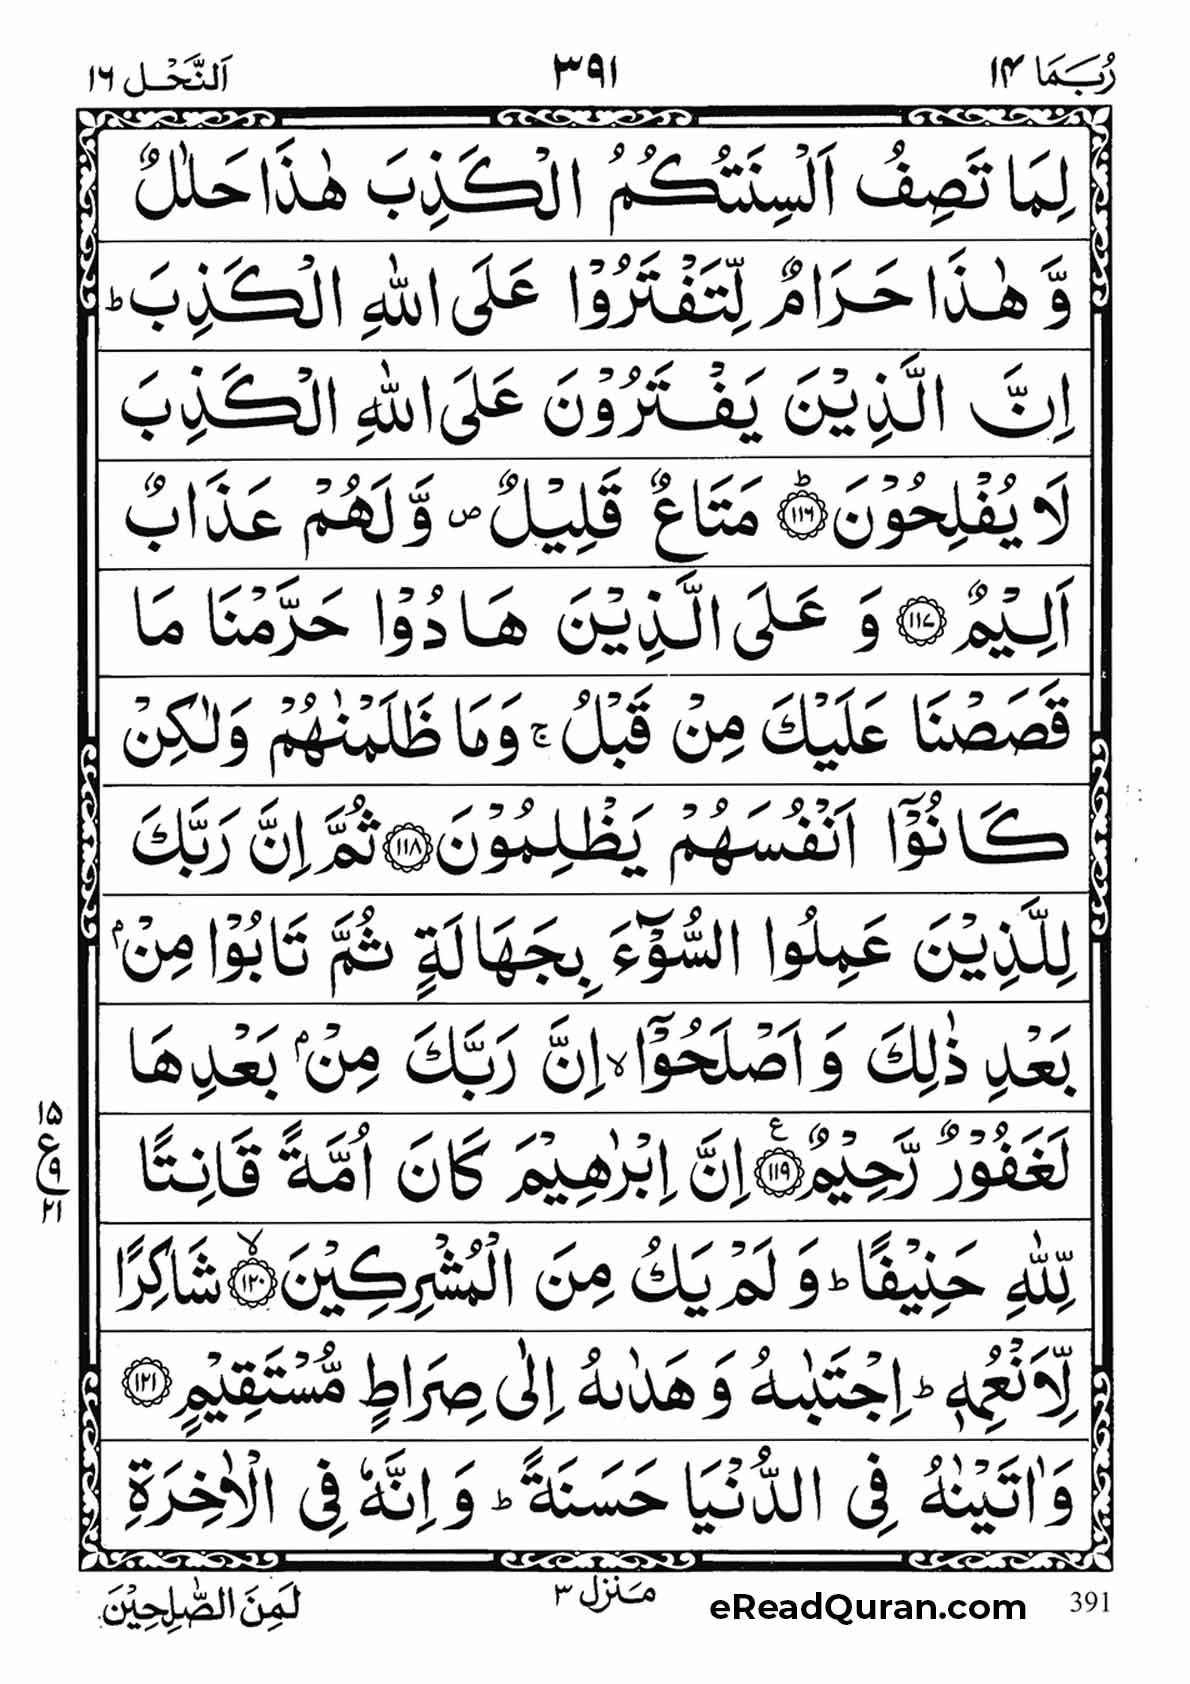 رُبَمَا ١٤ ٣٩١ اَلنَّحْل ١٦
لِمَا تَصِفُ اَلْسِنَتُكُمُ الْكَذِبَ هٰذَا حَلٰلٌ
وَّ هٰذَا حَرَامٌ لِّتَفْتَرُوْا عَلَى اللّٰهِ الْكَذِبَ ؕ
اِنَّ الَّذِيْنَ يَفْتَرُوْنَ عَلَى اللّٰهِ الْكَذِبَ
لَا يُفْلِحُوْنَ ؕ ﴿١١٦﴾ مَتَاعٌ قَلِيْلٌ ص وَّ لَهُمْ عَذَابٌ
اَلِيْمٌ ﴿١١٧﴾ وَ عَلَى الَّذِيْنَ هَادُوْا حَرَّمْنَا مَا
قَصَصْنَا عَلَيْكَ مِنْ قَبْلُ ج وَمَا ظَلَمْنٰهُمْ وَلٰكِنْ
كَانُوْۤا اَنْفُسَهُمْ يَظْلِمُوْنَ ﴿١١٨﴾ ثُمَّ اِنَّ رَبَّكَ
لِلَّذِيْنَ عَمِلُوا السُّوْٓءَ بِجَهَالَةٍ ثُمَّ تَابُوْا مِنْۢ
بَعْدِ ذٰلِكَ وَ اَصْلَحُوْۤا لا اِنَّ رَبَّكَ مِنْۢ بَعْدِهَا
لَغَفُوْرٌ رَّحِيْمٌ ع ﴿١١٩﴾ اِنَّ اِبْرٰهِيْمَ كَانَ اُمَّةً قَانِتًا
لِّلّٰهِ حَنِيْفًا ؕ وَ لَمْ يَكُ مِنَ الْمُشْرِكِيْنَ لا ﴿١٢٠﴾ شَاكِرًا
لِّاَنْعُمِهٖ ؕ اِجْتَبٰىهُ وَ هَدٰىهُ اِلٰى صِرَاطٍ مُّسْتَقِيْمٍ ﴿١٢١﴾
وَاٰتَيْنٰهُ فِى الدُّنْيَا حَسَنَةً ؕ وَ اِنَّهٗ فِى الْاٰخِرَةِ
١٥
ع
٩
٢١
لَمِنَ الصّٰلِحِيْنَ مَنزل ٣ eReadQuran.com 391